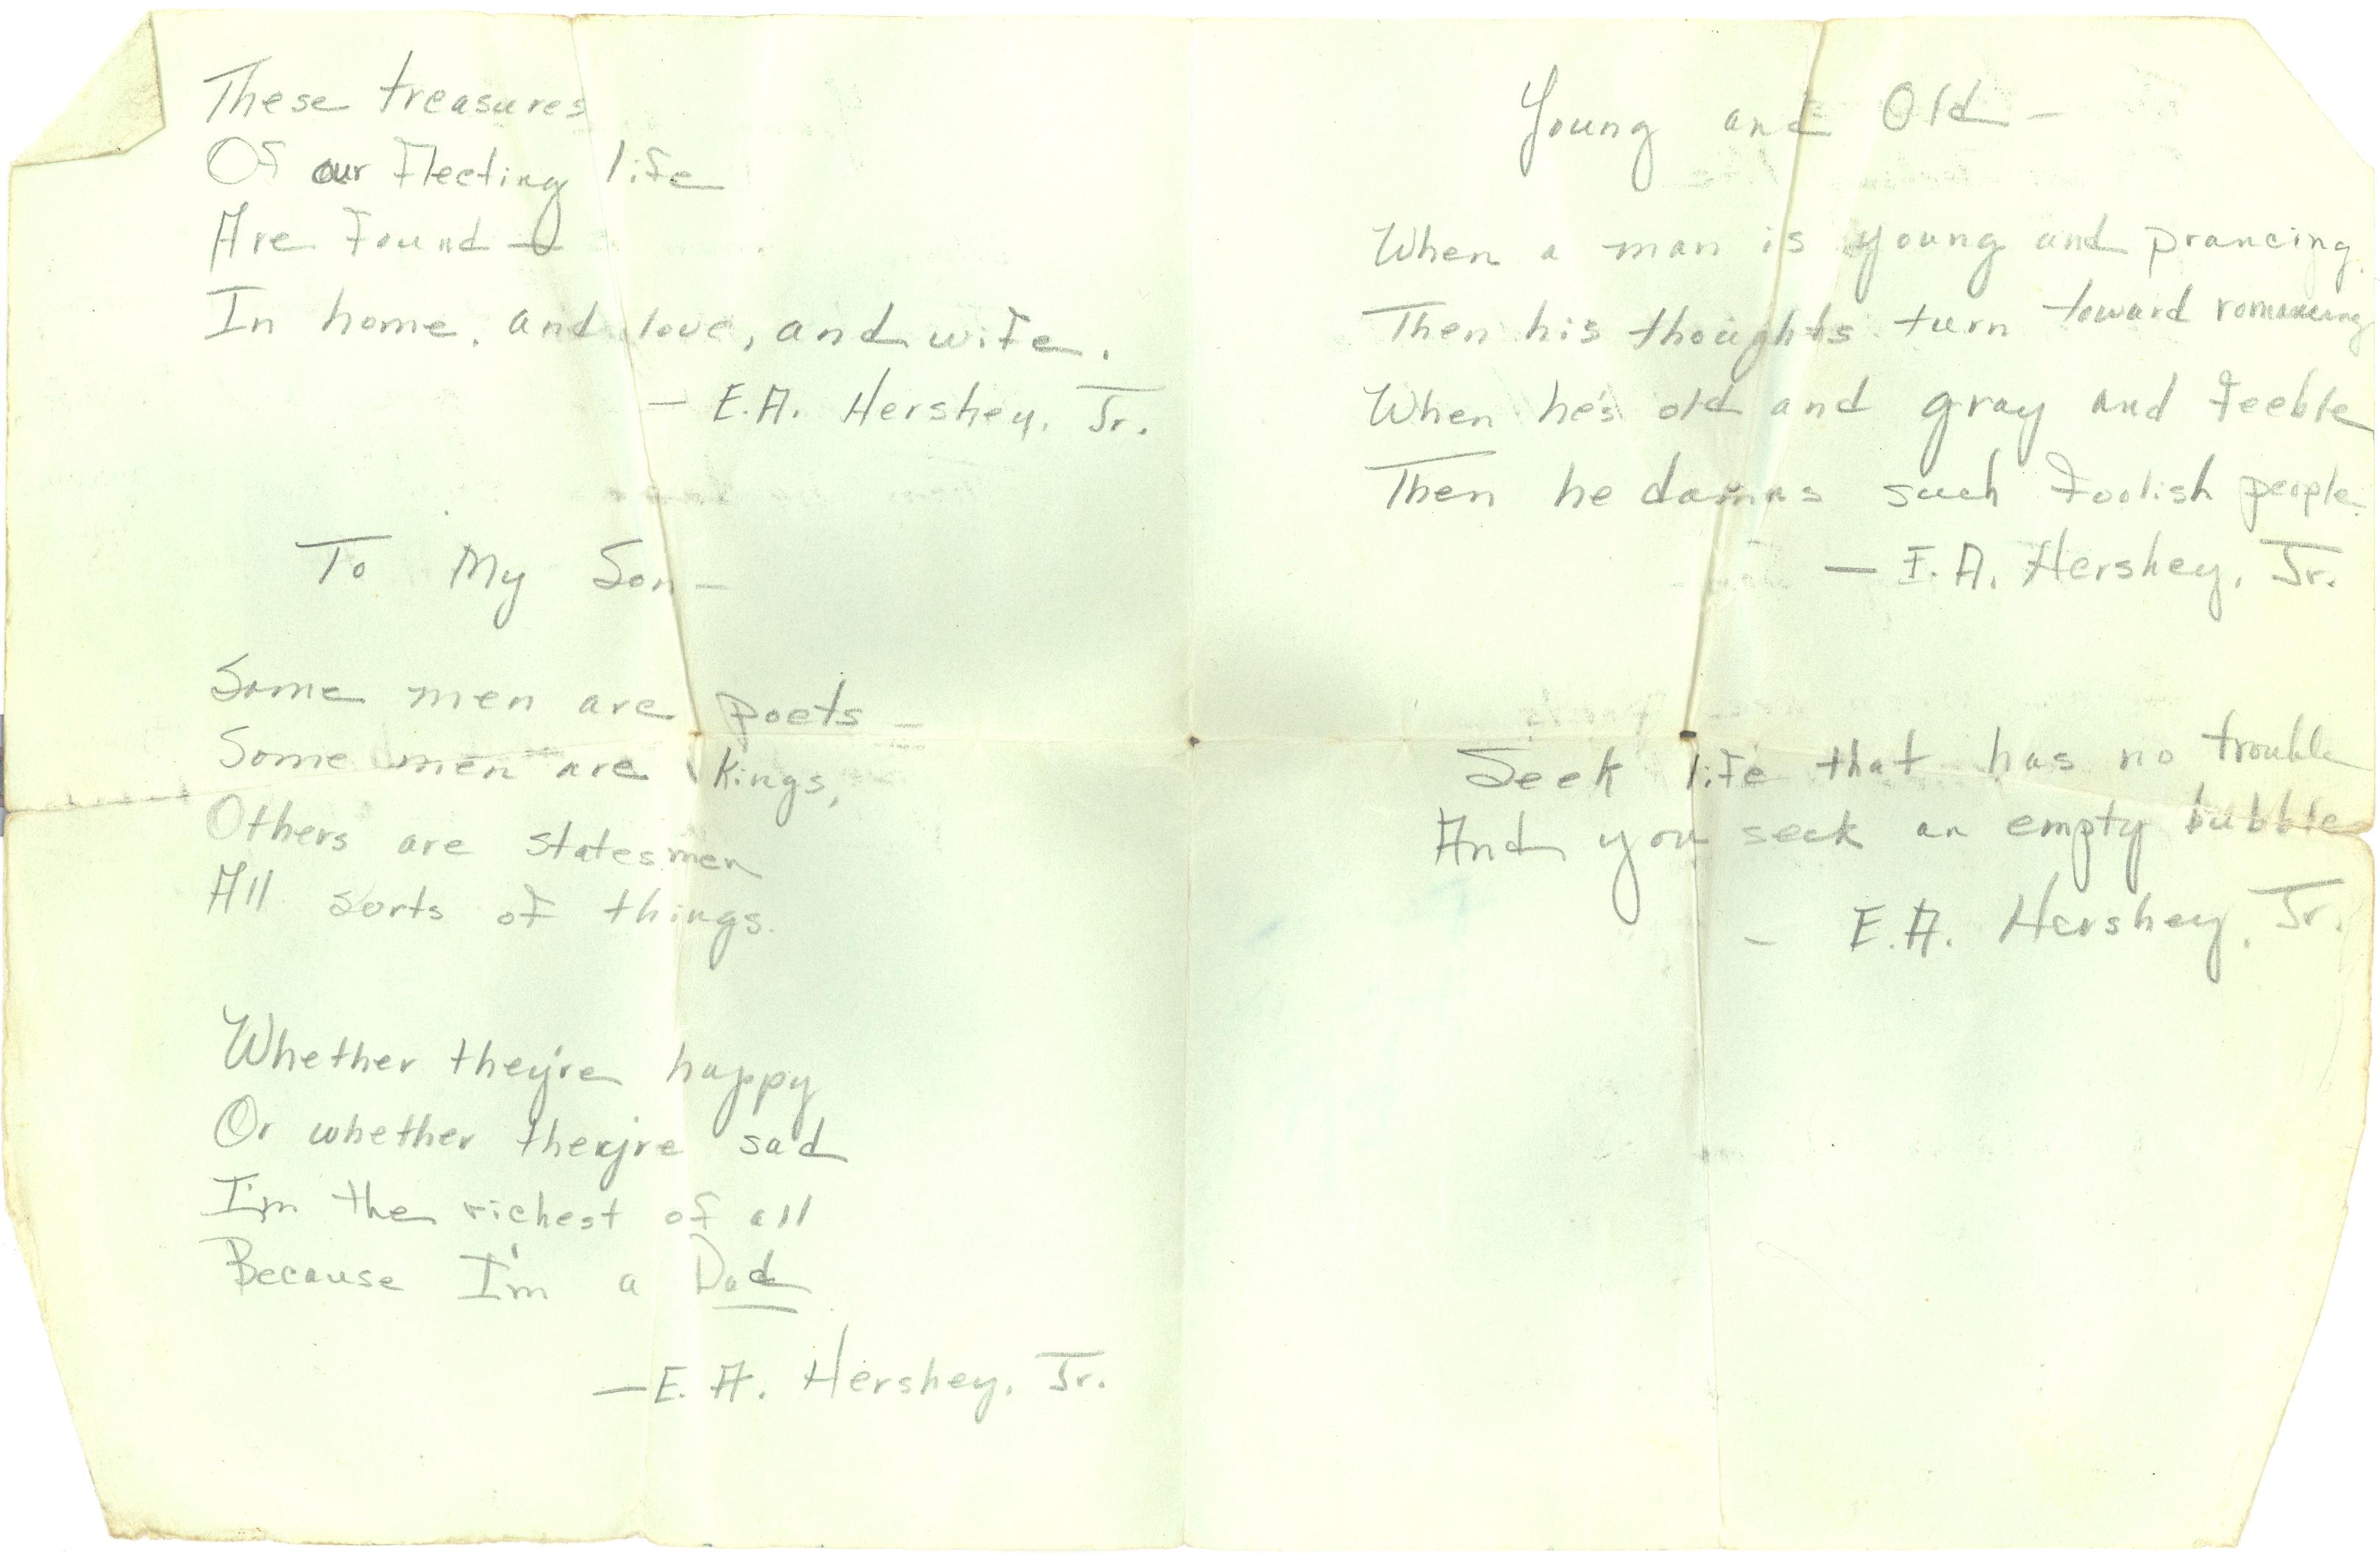 These treasures
Of our fleeting life
Are found —
In home, and love, and wife.
— E.A. Hershey, Jr.
To My Son —
Some men are poets —
Some men are kings,
Others are statesmen
All sorts of things.
Whether they're happy
Or whether they're sad
I'm the richest of all
Because I'm a Dad
— E. A. Hershey, Jr.
Young and Old —
When a man is young and prancing
Then his thoughts turn toward romancing
When he's old and gray and feeble
Then he damns such foolish people.
— E. A. Hershey, Jr.
Seek life that has no trouble
And you seek an empty bubble
— E. A. Hershey, Jr.